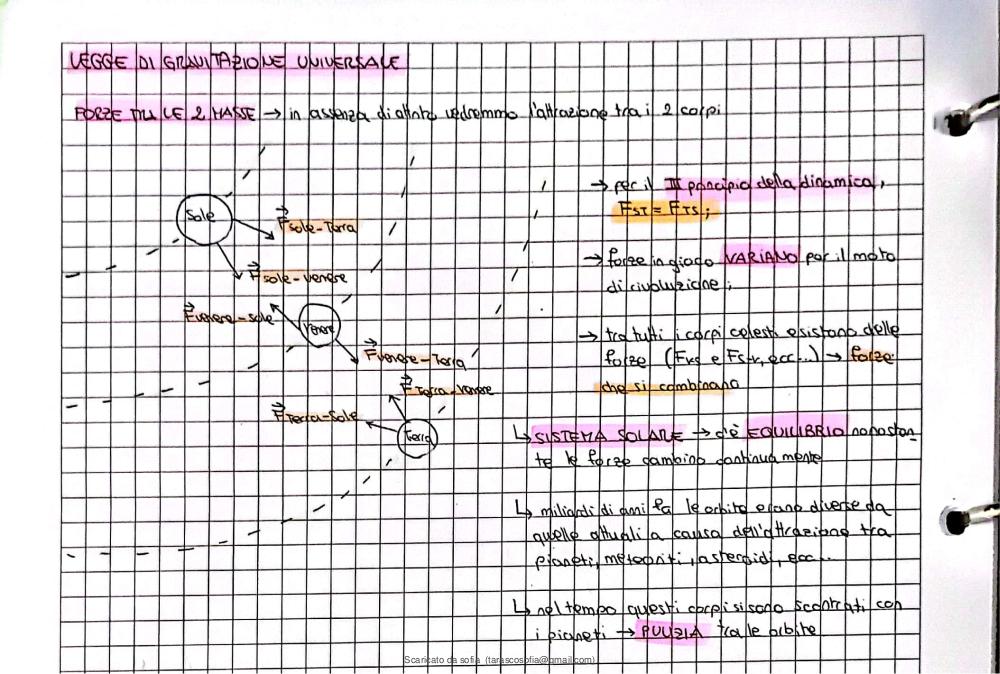 LEGGE DI GRAVITAZIONE UNIVERSALE
FORZE TRA LE 2 MASSE → in assenza di attrito vedremmo l'attrazione tra i 2 corpi
Sole
F⃗ sole-Terra
F⃗ sole-venere
F⃗ venere-sole
Venere
F⃗ venere-Terra
F⃗ Terra-Venere
F⃗ Terra-Sole
Terra
→ per il III principio della dinamica,
FST = FTS ;
→ forze in gioco VARIANO per il moto
di rivoluzione ;
→ tra tutti i corpi celesti esistono delle
forze (Fvs e Fs-v, ecc...) → forze
che si combinano
↳ SISTEMA SOLARE → c'è EQUILIBRIO nonostan
te le forze cambino continuamente
↳ miliardi di anni fa le orbite erano diverse da
quelle attuali a causa dell'attrazione tra
pianeti, meteoriti, asteroidi, ecc...
↳ nel tempo questi corpi si sono scontrati con
i pianeti → PULIZIA tra le orbite
Scaricato da sofia (tarascosofia@gmail.com)